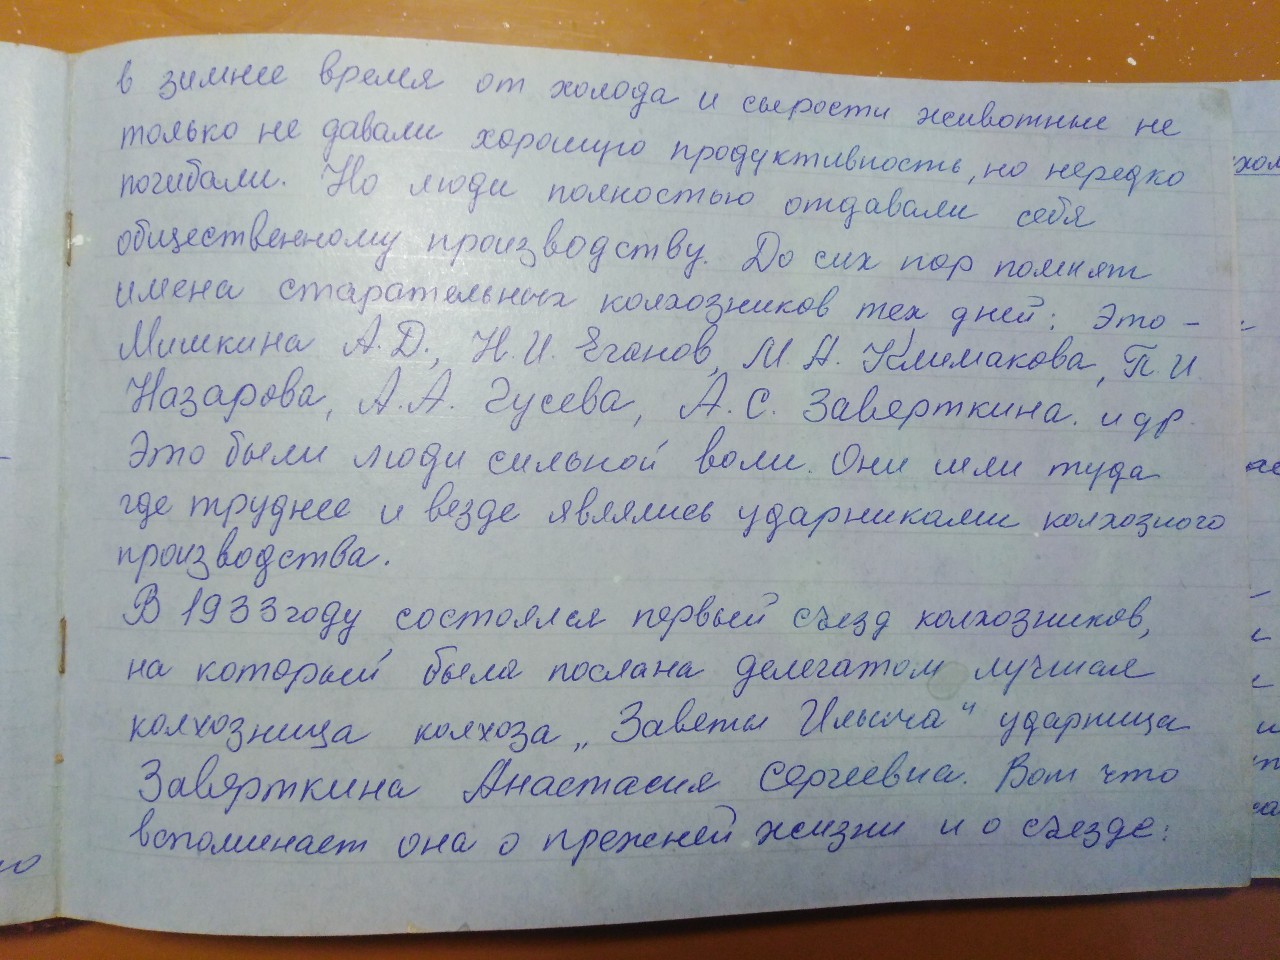 в зимнее время от холода и сырости животные не
только не давали хорошую продуктивность, но нередко
погибали. Но люди полностью отдавали себя
общественному производству. До сих пор помнят
имена старательных колхозников тех дней: Это –
Мишкина А.Д., Н.И. Еганов, М.А. Климакова, П.И.
Назарова, А.А. Гусева, А.С. Завярткина. и др.
Это были люди сильной воли. Они шли туда
где труднее и везде являлись ударниками колхозного
производства.
В 1933 году состоялся первый съезд колхозников,
на который была послана делегатом лучшая
колхозница колхоза „Заветы Ильича" ударница
Завярткина Анастасия Сергеевна. Вот что
вспоминает она о прежней жизни и о съезде: